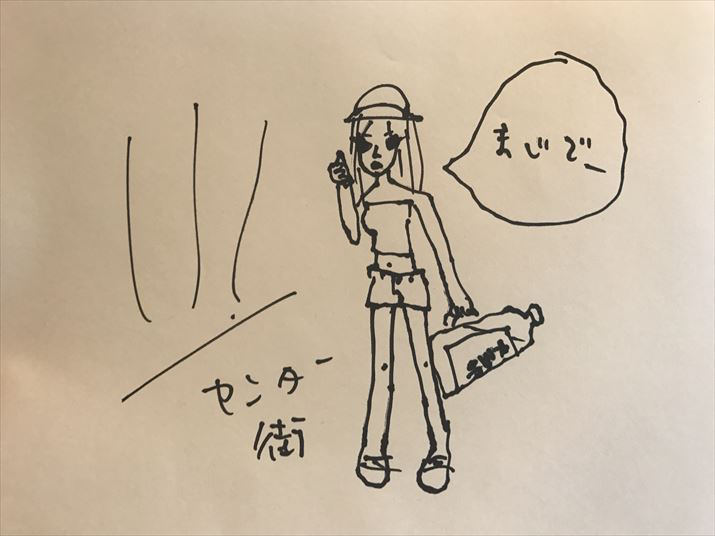 まじでー
センター
街